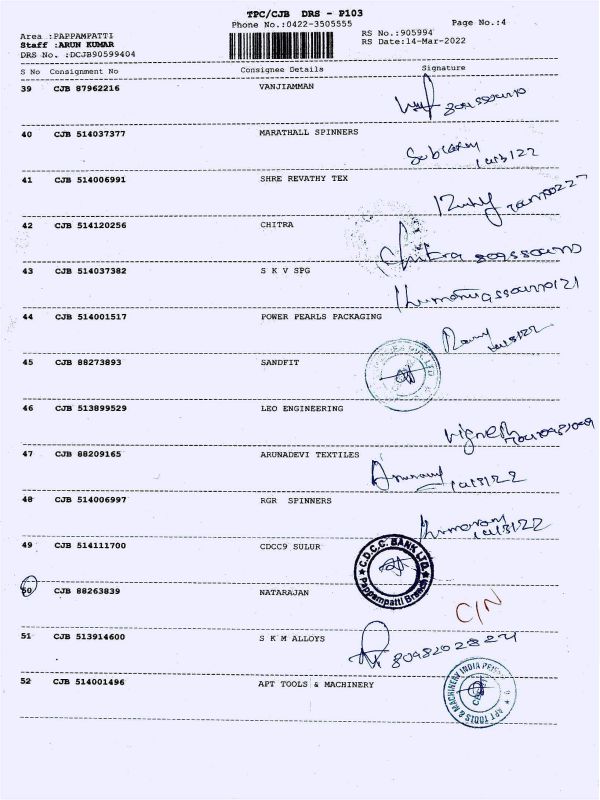 TPC/CJB DRS - P103
Phone No.:0422-3505555
Page No.:4
Area :PAPPAMPATTI
Staff :ARUN KUMAR
DRS No. :DCJB90599404
RS No.:905994
RS Date:14-Mar-2022
S No Consignment No Consignee Details Signature
39 CJB 87962216 VANJIAMMAN
40 CJB 514037377 MARATHALL SPINNERS
41 CJB 514006991 SHRE REVATHY TEX
42 CJB 514120256 CHITRA
Chitra
43 CJB 514037382 S K V SPG
44 CJB 514001517 POWER PEARLS PACKAGING
45 CJB 88273893 SANDFIT
46 CJB 513899529 LEO ENGINEERING
Vignesh
47 CJB 88209165 ARUNADEVI TEXTILES
48 CJB 514006997 RGR SPINNERS
49 CJB 514111700 CDCC9 SULUR
C.D.C.C. BANK LTD.
Pappampatti Branch
50 CJB 88263839 NATARAJAN
C/N
51 CJB 513914600 S K M ALLOYS
52 CJB 514001496 APT TOOLS & MACHINERY
APT TOOLS & MACHINERY INDIA